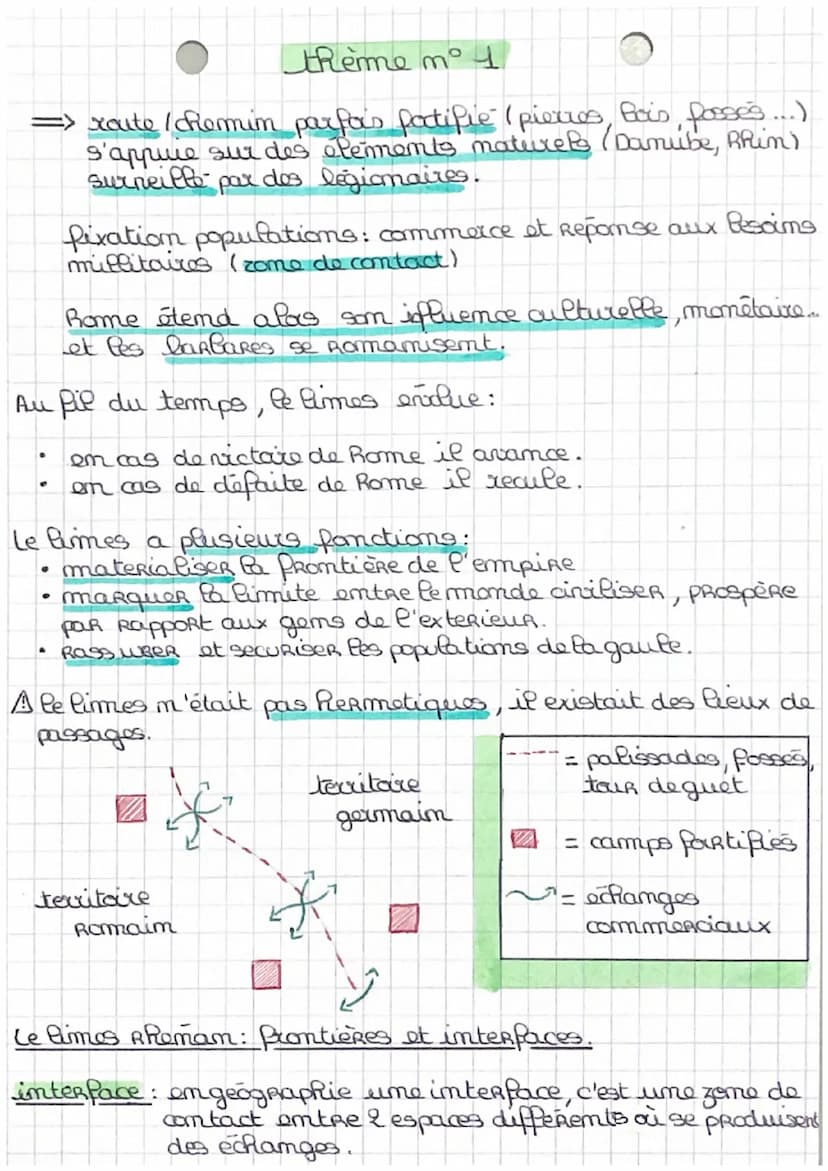 thème n° 1
=> route / chemin parfois fortifié (pierres, bois, fossés ...)
s'appuie sur des éléments naturels (Danube, Rhin)
surveillé par des légionaires.
fixation populations : commerce et réponse aux besoins
millitaires (zone de contact)
Rome étend alors son influence culturelle, monétaire...
et les barbares se romanisent.
Au fil du temps, le limes évolue :
• en cas de victoire de Rome il avance.
• en cas de défaite de Rome il recule.
Le limes a plusieurs fonctions :
• materialiser la frontière de l'empire
• marquer la limite entre le monde civiliser, prospère
par rapport aux gens de l'exterieur.
• rassurer et securiser les populations de la gaule.
⚠ le limes n'était pas hermetiques, il existait des lieux de
passages.
= palissades, fossés,
tour de guet
= camps fortifiés
= echanges
commerciaux
territoire
germain
territoire
romain
Le limes Rhénan : frontières et interfaces.
interface : en geographie une interface, c'est une zone de
contact entre 2 espaces différents où se produisent
des échanges.